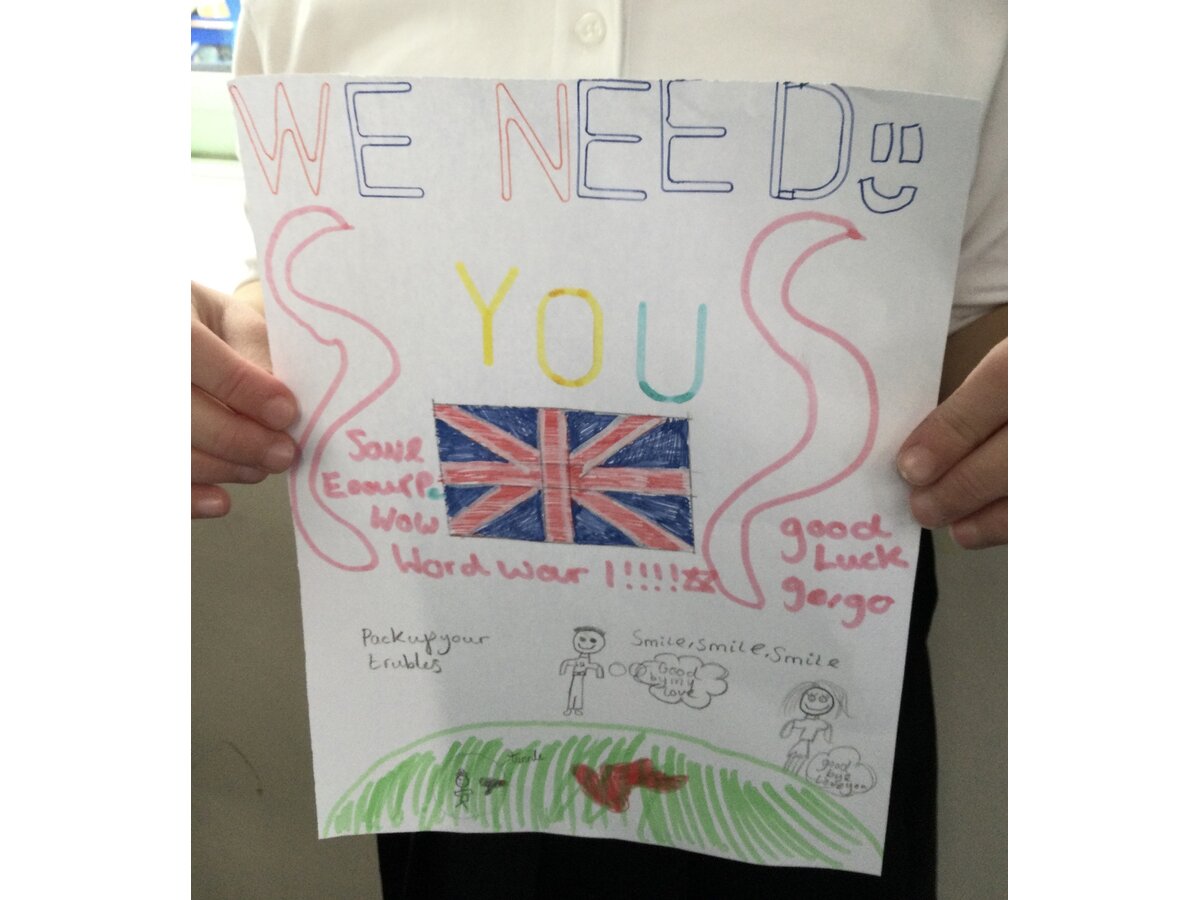 WE NEED
YOU
Save
EouurPe
Wow
Word war 1!!!!
good
Luck
gorgo
Pack up your
trubles
Smile, smile, Smile
Good
by my
love
good
bye
Love you